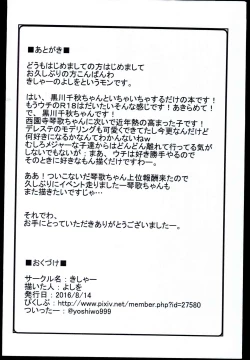 ■あとがき■
どうもはじめましての方ははじめまして
お久しぶりの方こんばんわ
きしゃーのよしをというモンです。
はい、黒川千秋ちゃんといちゃいちゃするだけの本です！
もうウチのR18はだいたいそんな感じです！あきらめて！
で、黒川千秋ちゃんです！
西園寺琴歌ちゃんに次いで近年熱の高まった子です！
デレステのモデリングも可愛くできてたし今更なんだけど
何好きになるかなんてわかんないねｗ
むしろメジャーな子達からはどんどん離れて行ってる気が
しないでもないが：まあ、ウチは好き勝手やるので
そのときに好きなもん描けたらいいですけど。
ああ！ついこないだ琴歌ちゃん上位報酬来たので
久しぶりにイベント走りましたー琴歌ちゃんも
また描きたいですじゃ…
それでわ、
お手にとっていただきありがとうございましたー。
■おくづけ■
サークル名：きしゃー
描いた人：よしを
発行日：2016/8/14
ぴくしぶ：http://www.pixiv.net/member.php?id=27580
ついったー：@yoshiwo999